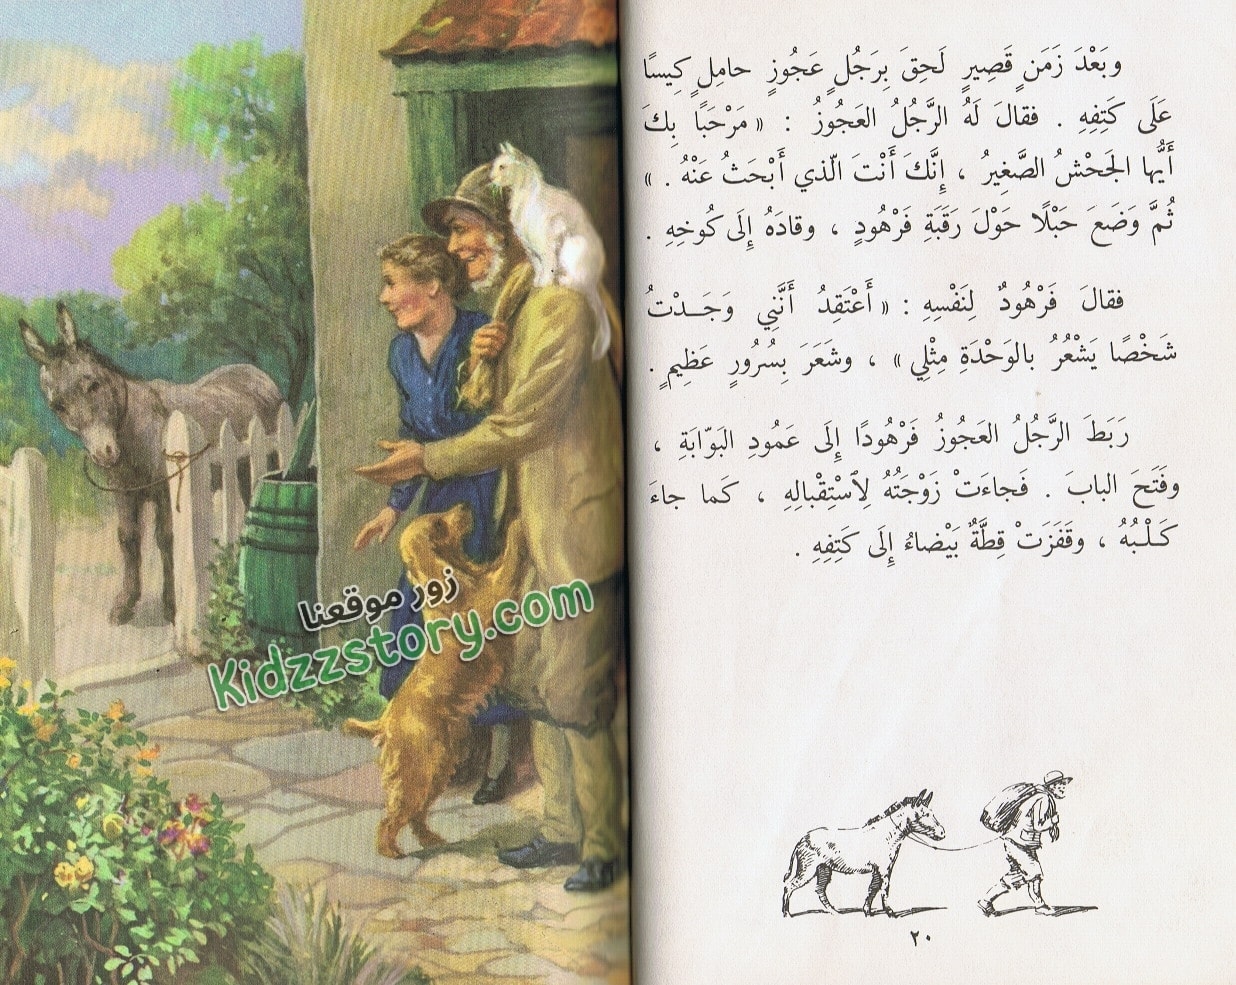 وبَعْدَ زَمَنٍ قَصِيرٍ لَحِقَ بِرَجُلٍ عَجُوزٍ حامِلٍ كِيسًا
عَلَى كَتِفِهِ . فقالَ لَهُ الرَّجُلُ العَجُوزُ : « مَرْحَبًا بِكَ
أَيُّها الجَحْشُ الصَّغِيرُ ، إِنَّكَ أَنْتَ الّذي أَبْحَثُ عَنْهُ . »
ثُمَّ وَضَعَ حَبْلًا حَوْلَ رَقَبَةِ فَرْهُودٍ ، وقادَهُ إِلَى كُوخِهِ .
فقالَ فَرْهُودٌ لِنَفْسِهِ : « أَعْتَقِدُ أَنَّنِي وَجَدْتُ
شَخْصًا يَشْعُرُ بالوَحْدَةِ مِثْلِي » ، وشَعَرَ بِسُرُورٍ عَظِيمٍ .
رَبَطَ الرَّجُلُ العَجُوزُ فَرْهُودًا إِلَى عَمُودِ البَوّابَةِ ،
وفَتَحَ البابَ . فَجاءَتْ زَوْجَتُهُ لِاسْتِقْبالِهِ ، كَما جاءَ
كَلْبُهُ ، وقَفَزَتْ قِطَّةٌ بَيْضاءُ إِلَى كَتِفِهِ .
٢٠
زور موقعنا
Kidzzstory.com